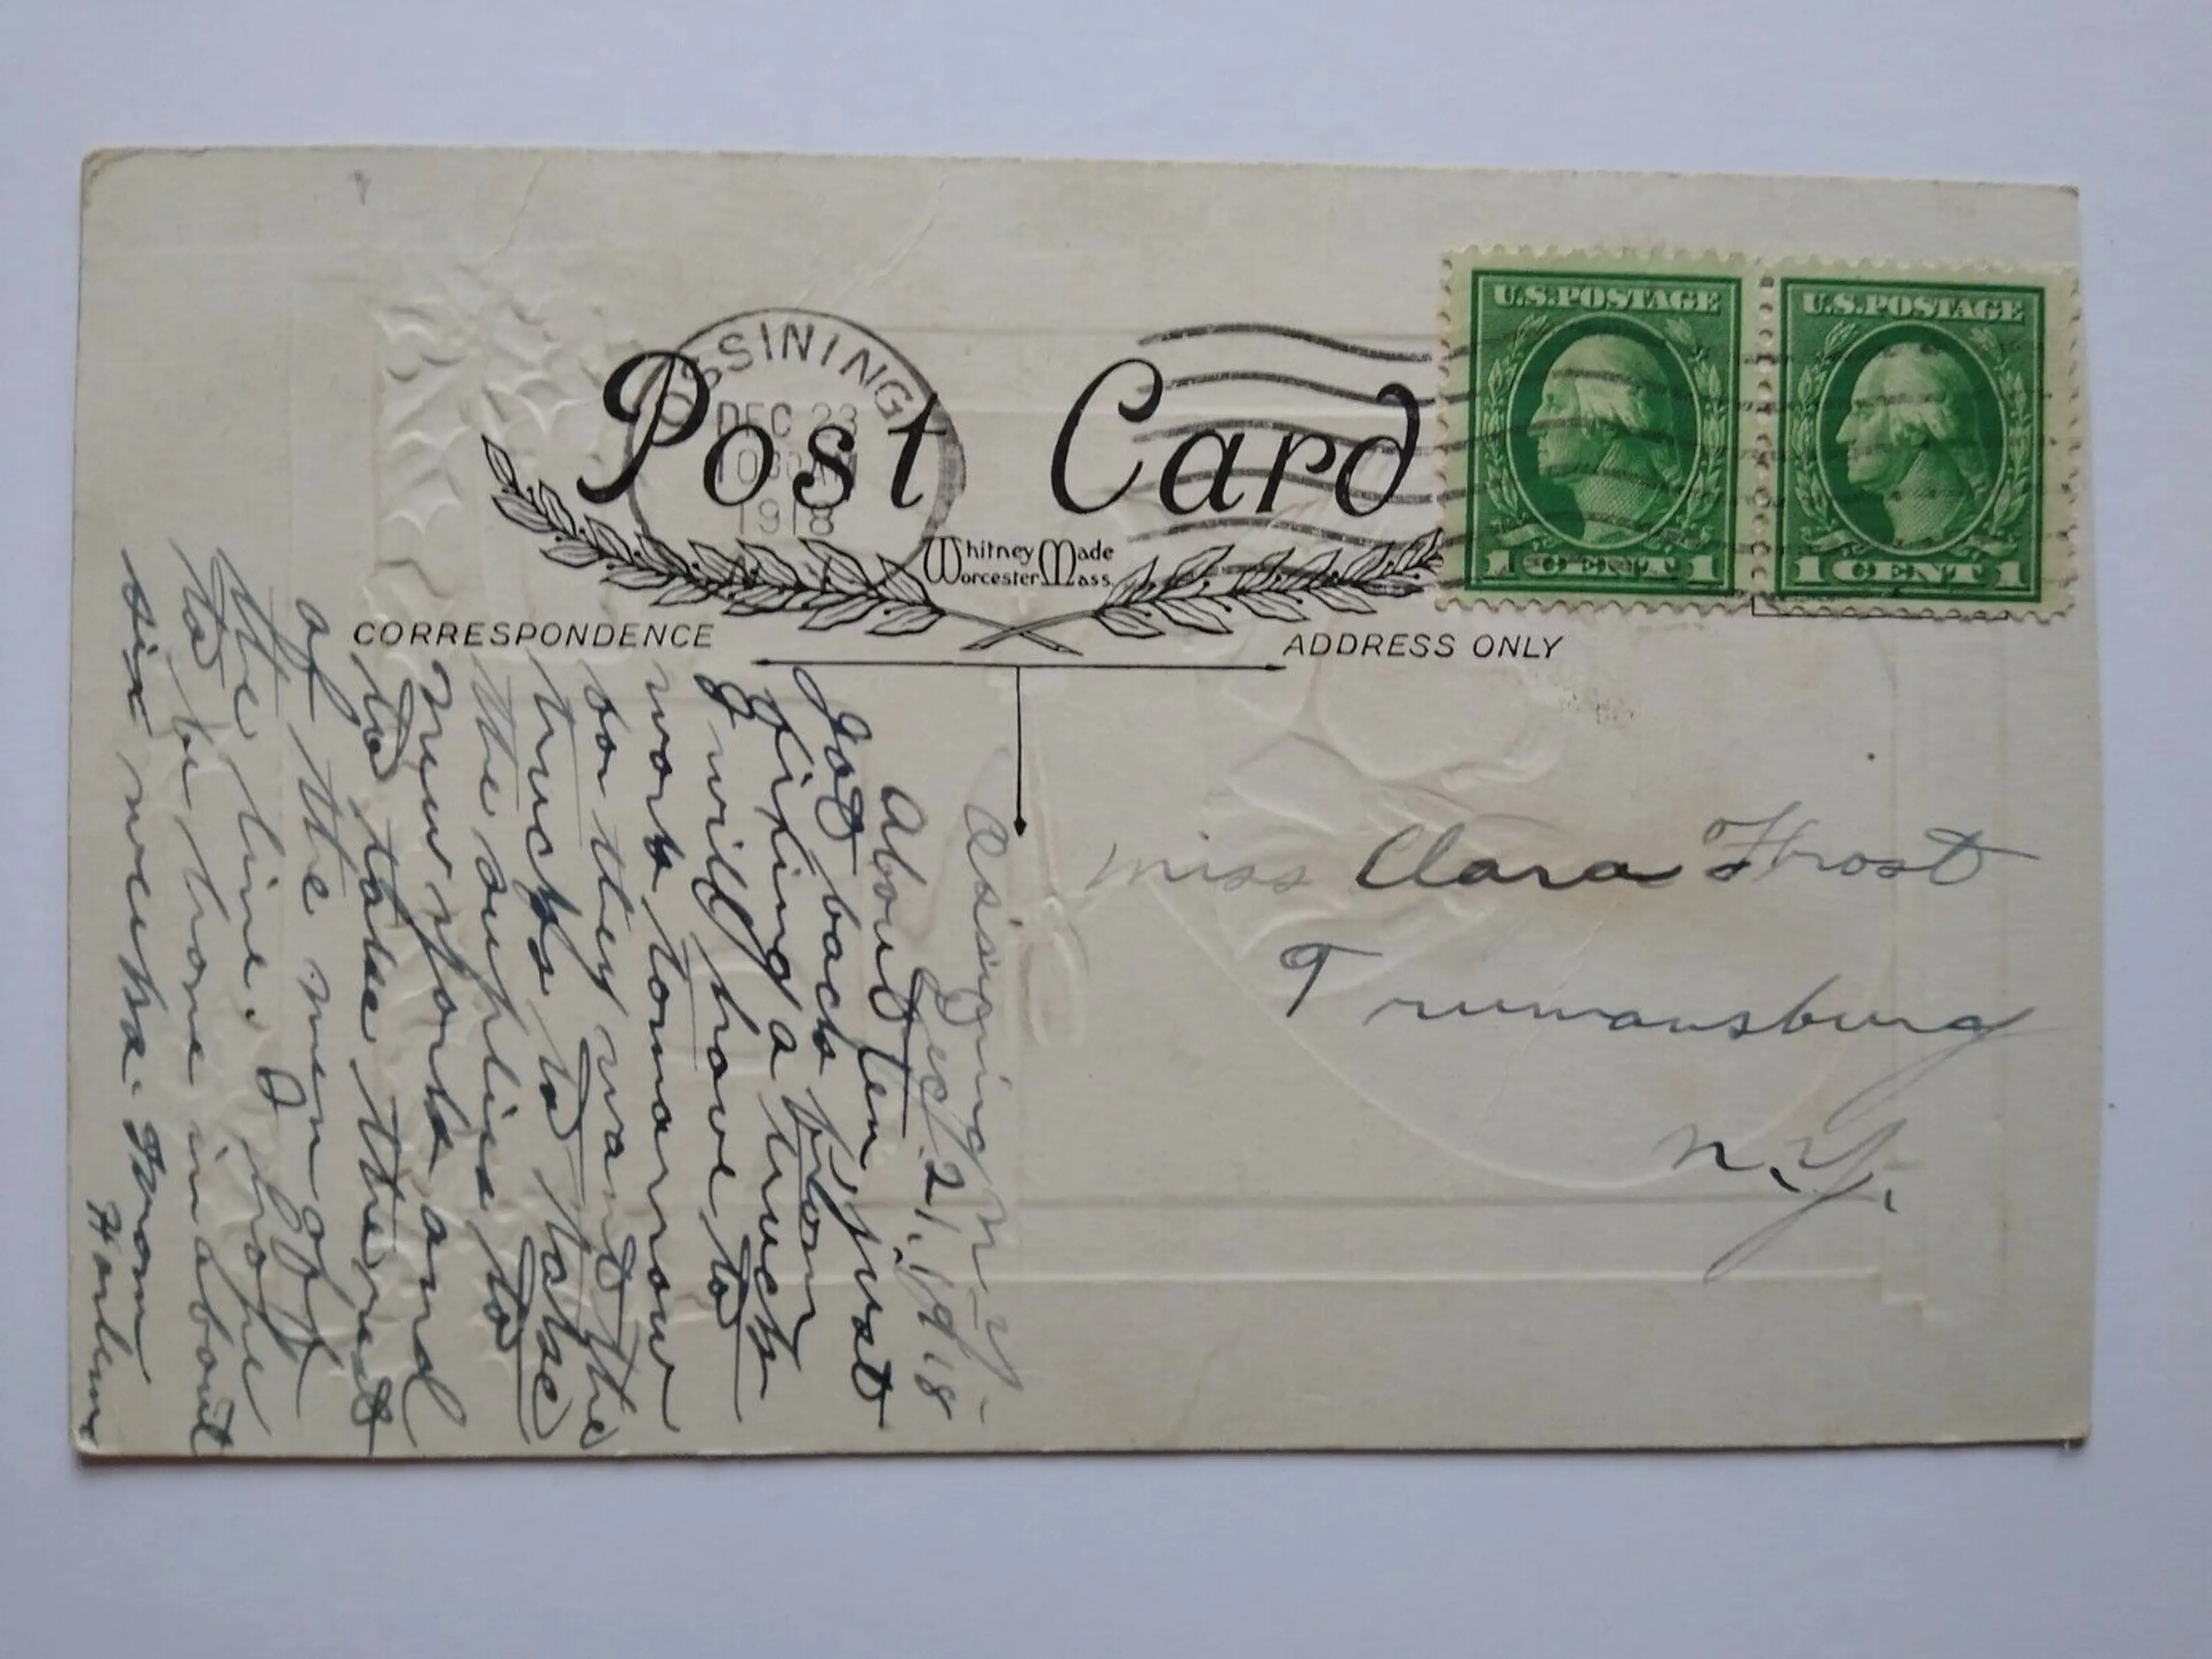 OSSINING
DEC 23
1030 AM
1918
N.Y.
Post Card
U.S. POSTAGE
1 CENT 1
U.S. POSTAGE
1 CENT 1
Whitney Made
Worcester Mass.
CORRESPONDENCE
ADDRESS ONLY
Ossining N-Y-
Dec. 21. 1918
About ten, just
got back from
fixing a truck
I will have to
work tomorrow
so they want the
trucks to take
the supplies to
New York and
to take the rest
of the men off
the line. I hope
to be home in about
six weeks. From
Harlem
Miss Clara Frost
Trumansburg
N.Y.